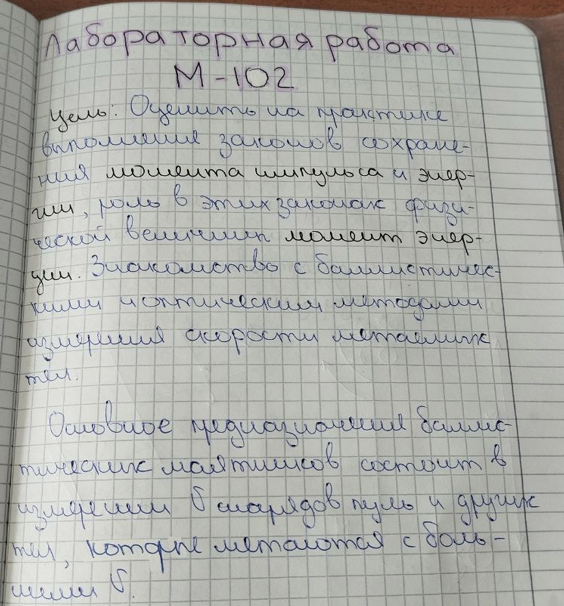 Лабораторная работа
М-102
Цель: Оценить на практике
выполнение законов сохране-
ния момента импульса и энер-
гии, роль в этих законах физи-
ческой величины момент энер-
ции. Знакомство с баллистичес-
кими и оптическим методами
измерения скорости метаемых
тел.
Основное предназначение баллис-
тических маятников состоит в
измерении υ снарядов пуль и других
тел, которые метаются с боль-
шими υ.